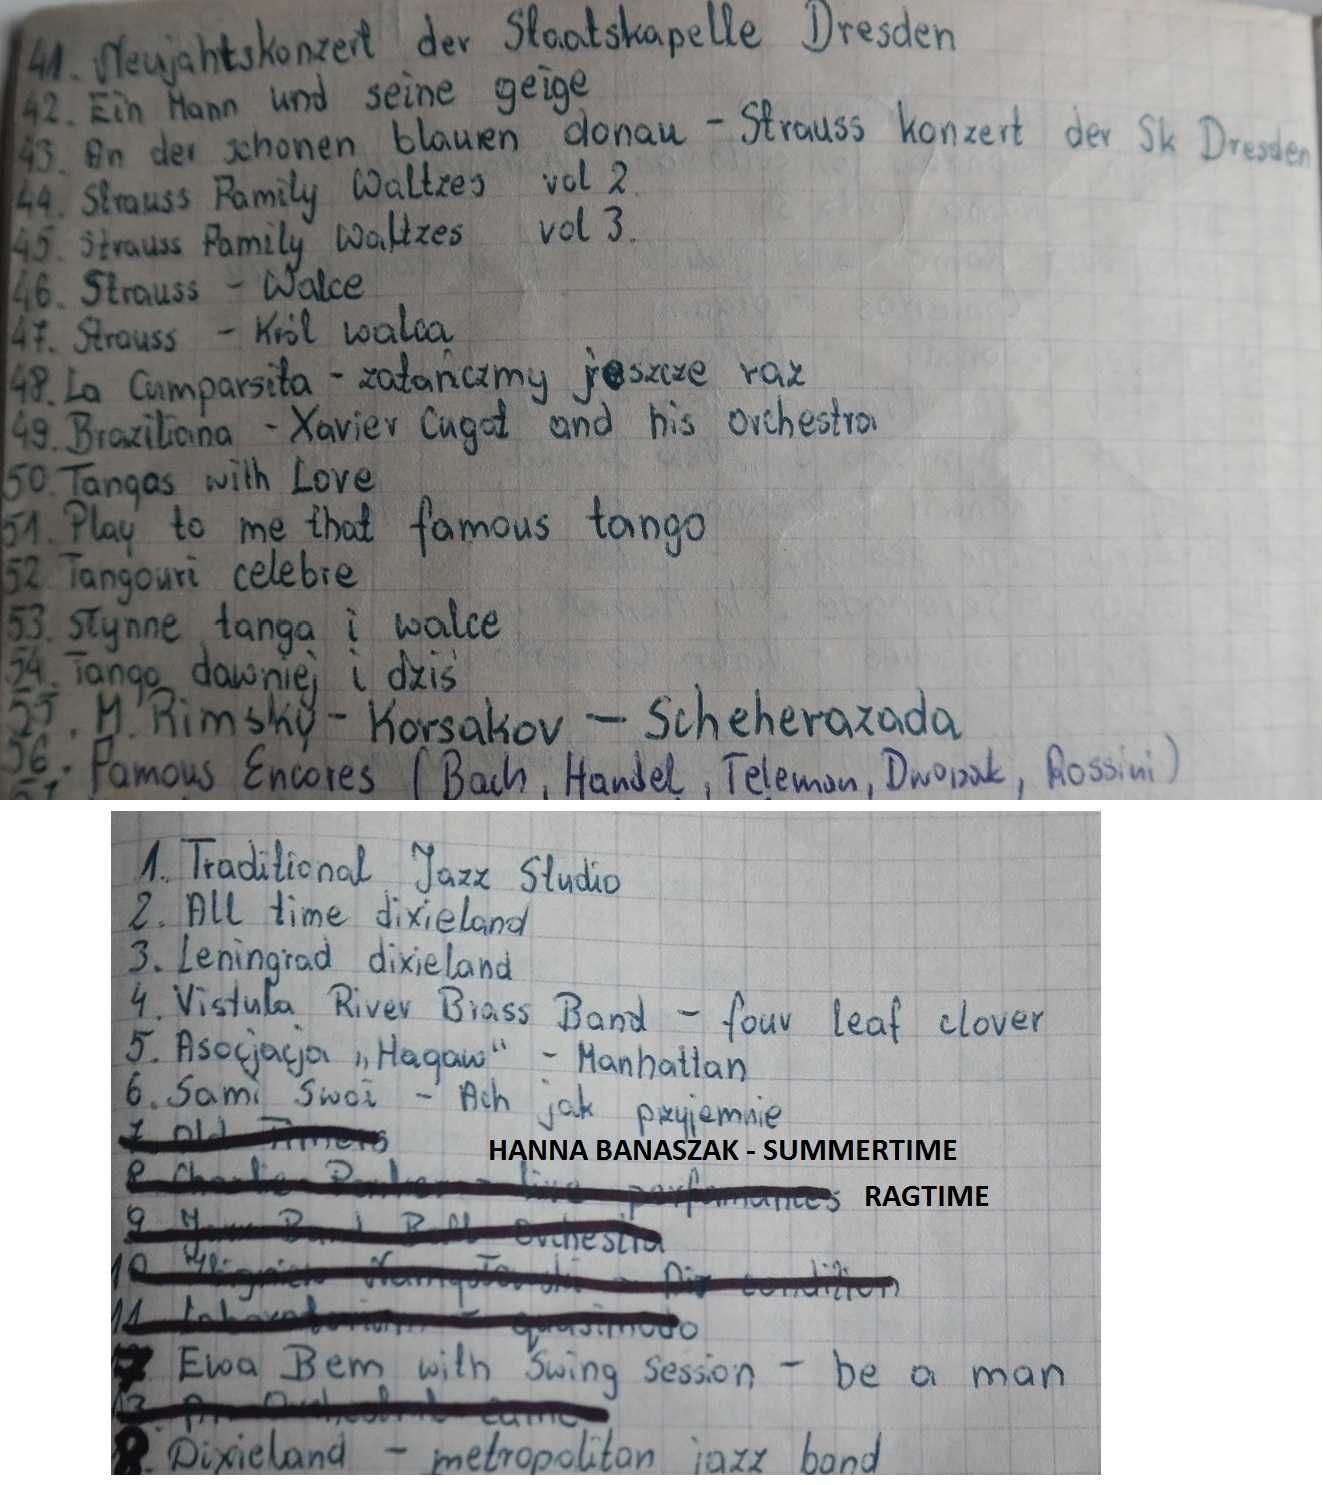 41. Neujahtskonzert der Staatskapelle Dresden
42. Ein Mann und seine geige
43. An der schonen blauen donau - Strauss konzert der Sk Dresden
44. Strauss Family Waltzes vol 2.
45. Strauss Family Waltzes vol 3.
46. Strauss - Walce
47. Strauss - Król walca
48. La Cumparsita - zatańczmy jeszcze raz
49. Braziliana - Xavier Cugat and his orchestra
50. Tangos with Love
51. Play to me that famous tango
52. Tangouri celebre
53. słynne tanga i walce
54. Tango dawniej i dziś
55. M. Rimsky - Korsakov - Scheherazada
56. Famous Encores (Bach, Handel, Teleman, Dworzak, Rossini)
57
1. Traditional Jazz Studio
2. All time dixieland
3. Leningrad dixieland
4. Vistula River Brass Band - four leaf clover
5. Asocjacja „Hagaw" - Manhattan
6. Sami Swoi - Ach jak przyjemnie
7 Old Timers
HANNA BANASZAK - SUMMERTIME
8 Charlie Parker - live perfomances RAGTIME
9 Ball orchestra
10 Zbigniew Namysłowski - Air condition
11 Laboratorium - quasimodo
7 Ewa Bem with Swing session - be a man
8. Dixieland - metropolitan jazz band